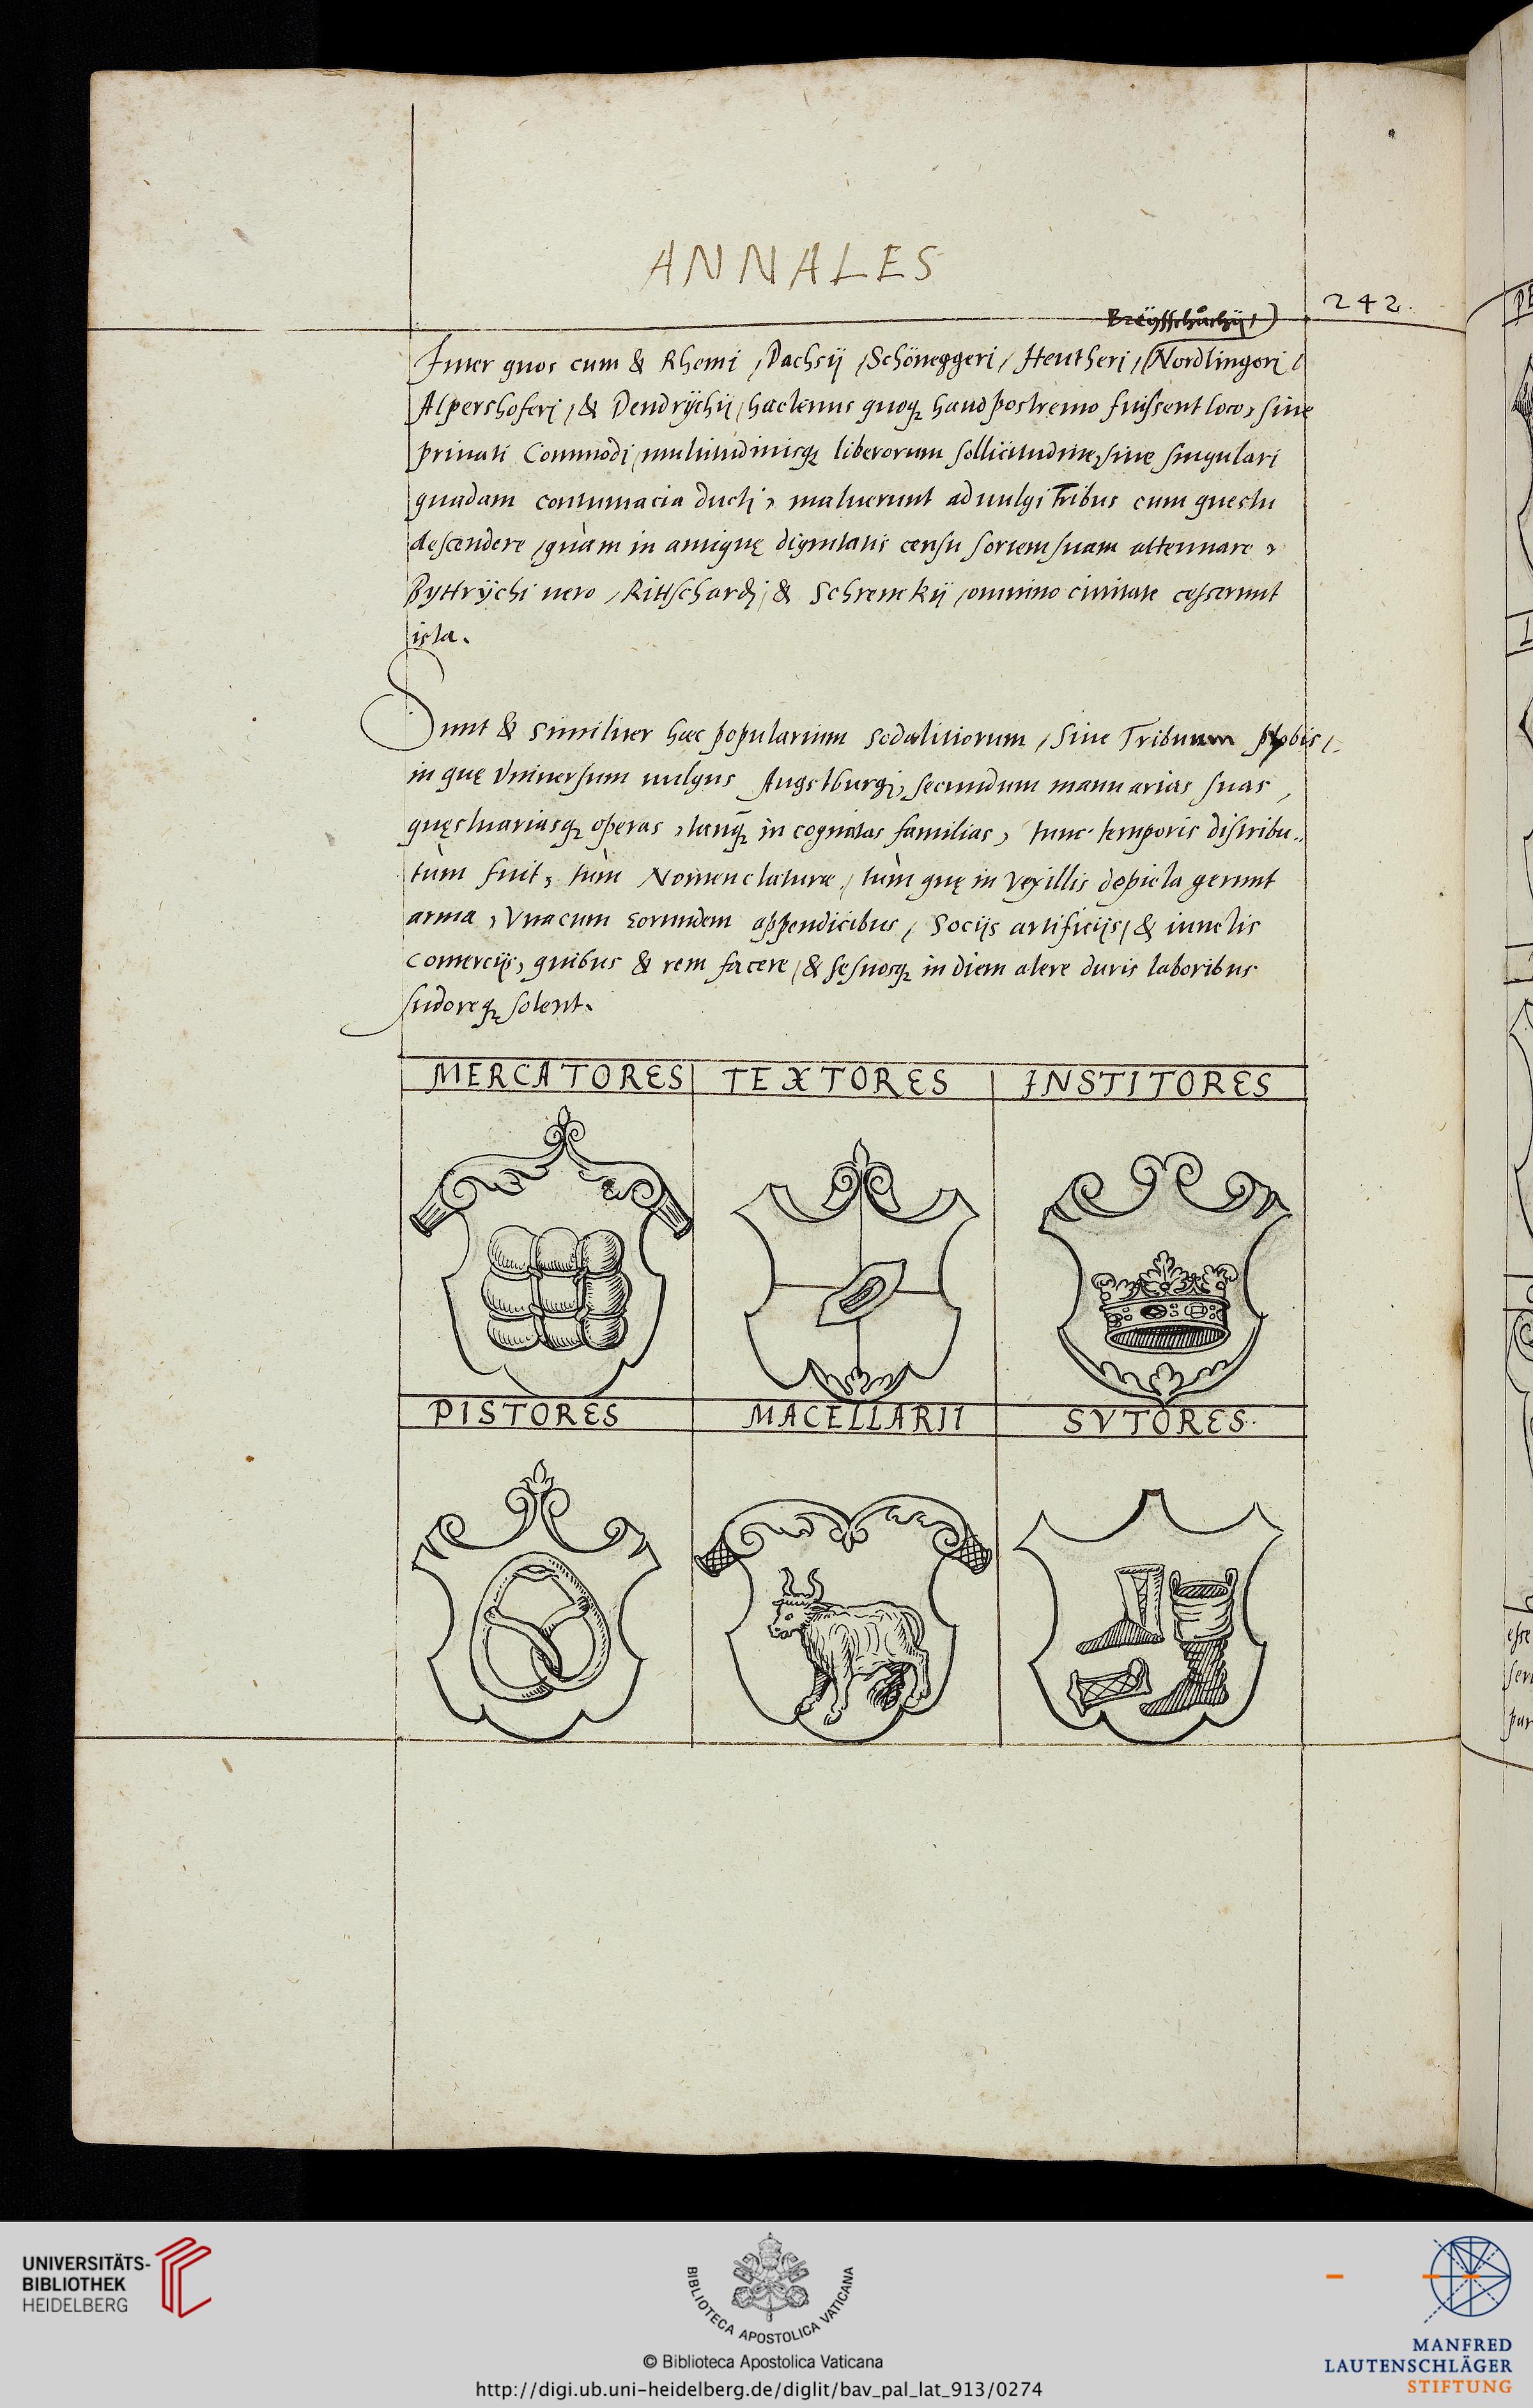 ANNALES
242.
Breÿsschůchij /)
Inter quos cum & Rhemi / Dachsij / Schöneggeri / Heutheri / (Nordlingeri /
Alpershoferi / & Dendrÿchij / hactenus quoqꝫ haud postremo fuissent loco, siue
priuati Commodi / multitudinisqꝫ liberorum sollicitudine, siue singulari
quadam contumacia ducti, maluerunt ad uulgi Tribus cum questu
descendere / quàm in antiquę dignitatis censu sortem suam attenuare,
Byttrÿchi uero / Rittschardi / & Schrenckij / omnino ciuitate cesserunt
ista.
Sunt & similiter haec popularium sodalitiorum / Siue Tribuum plebis /
in quę Vniuersum uulgus Augstburgi, secundum manuarias suas,
quęstuariasqꝫ operas, tanqꝫ̄ in cognatas familias, tunc temporis distribu..
tum fuit, tùm Nomenclaturæ / tùm quę in Vexillis depicta gerunt
arma, Vnacum eorundem appendicibus / Socijs artificijs / & iunctis
Comercijs, quibus & rem facere / & se suosqꝫ in diem alere duris laboribus
sudoreqꝫ solent.
MERCATORES TEXTORES INSTITORES
PISTORES MACELLARII SVTORES.
UNIVERSITÄTS-
BIBLIOTHEK
HEIDELBERG
BIBLIOTECA APOSTOLICA VATICANA
© Biblioteca Apostolica Vaticana
http://digi.ub.uni-heidelberg.de/diglit/bav_pal_lat_913/0274
MANFRED
LAUTENSCHLÄGER
STIFTUNG